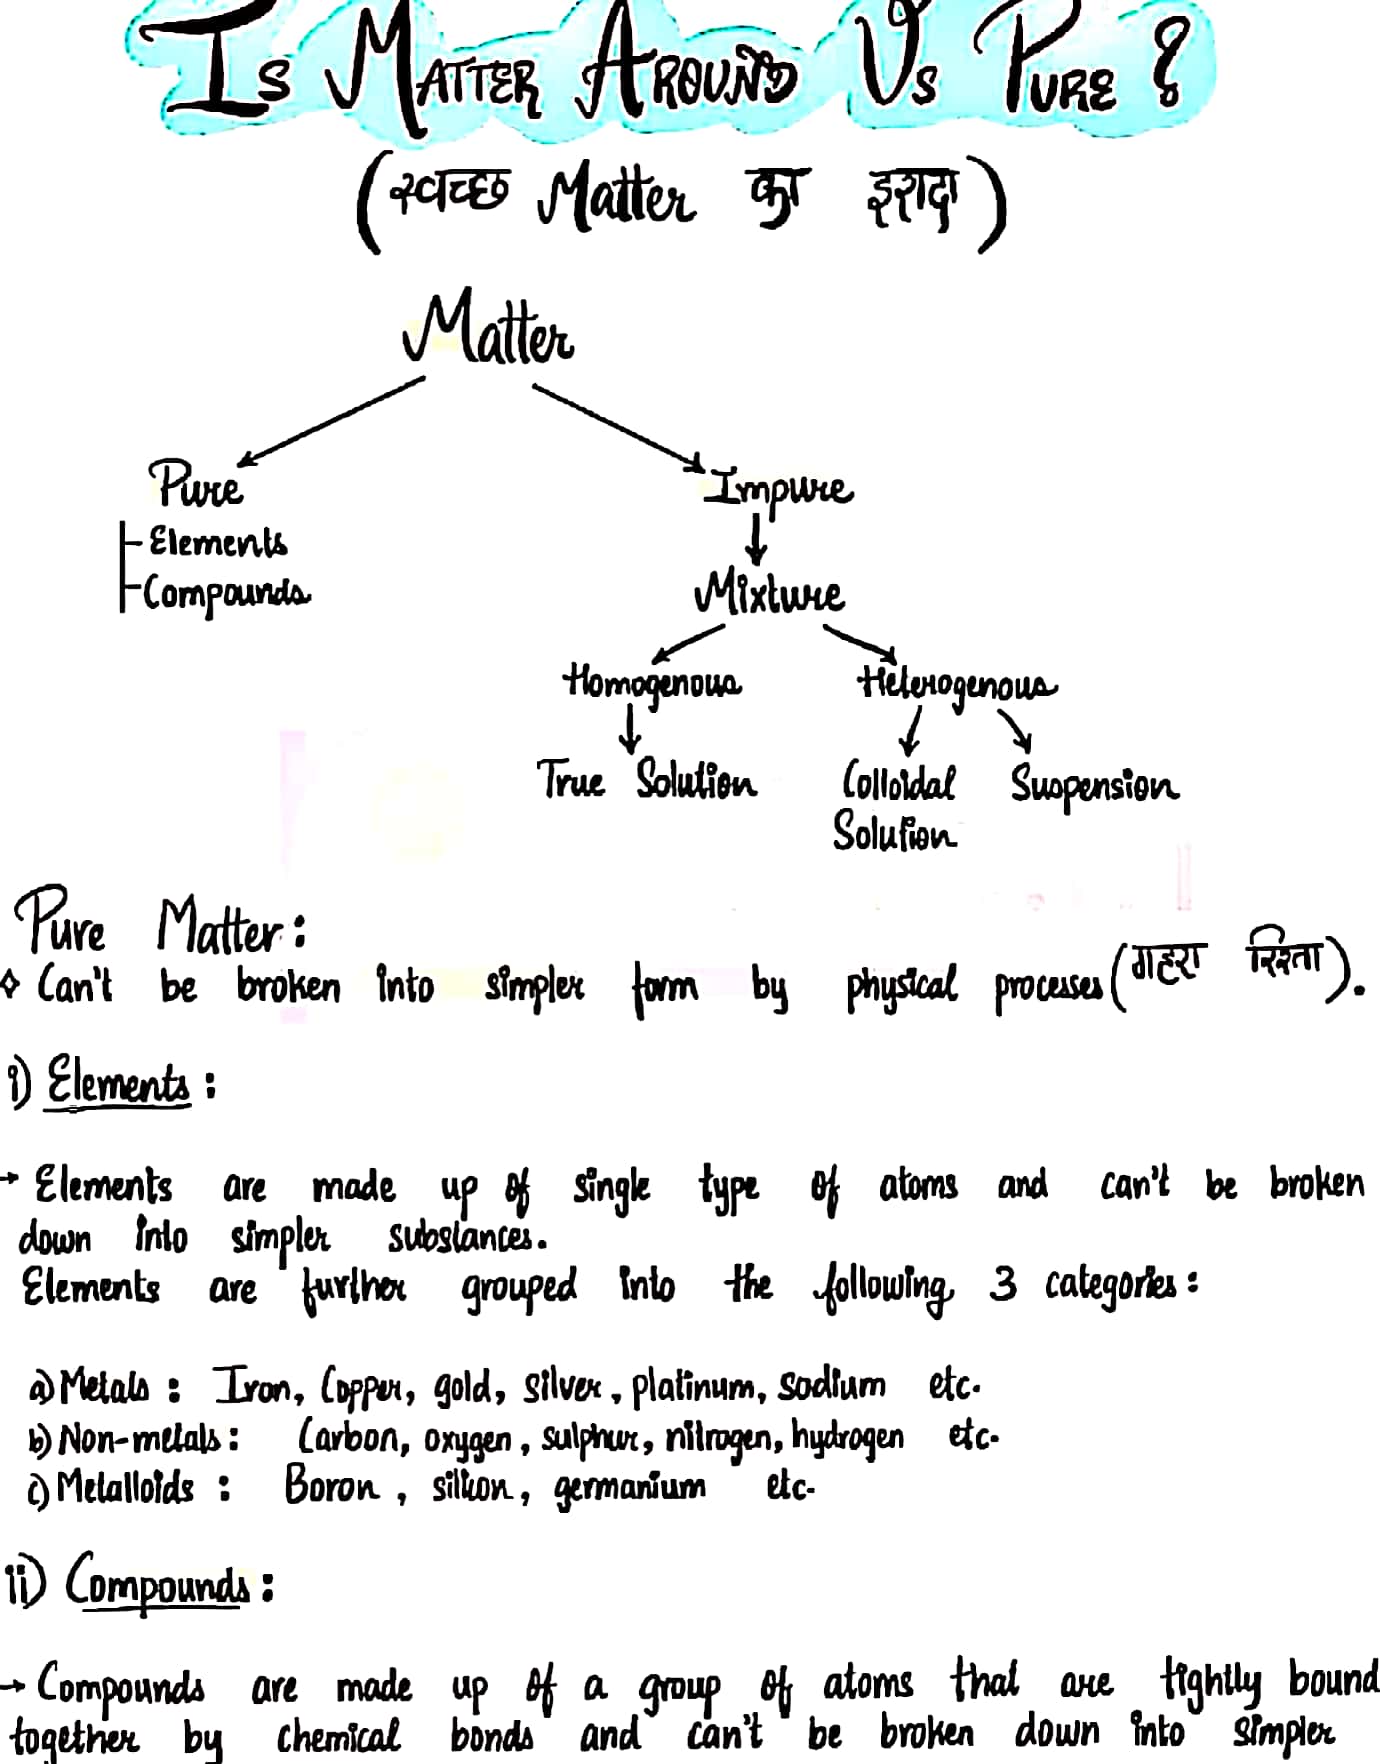 Is Matter Around Us Pure ?
(स्वच्छ Matter का इरादा)
Matter
Pure
Impure
Elements
Compounds
Mixture
Homogenous
Heterogenous
True Solution
Colloidal
Solution
Suspension
Pure Matter:
Can't be broken into simpler form by physical processes (गहरा रिश्ता).
i) Elements:
→ Elements are made up of single type of atoms and can't be broken
down into simpler substances.
Elements are further grouped into the following 3 categories:
a) Metals: Iron, Copper, gold, silver, platinum, sodium etc.
b) Non-metals: Carbon, oxygen, sulphur, nitrogen, hydrogen etc.
c) Metalloids: Boron, silicon, germanium etc.
ii) Compounds:
→ Compounds are made up of a group of atoms that are tightly bound
together by chemical bonds and can't be broken down into simpler